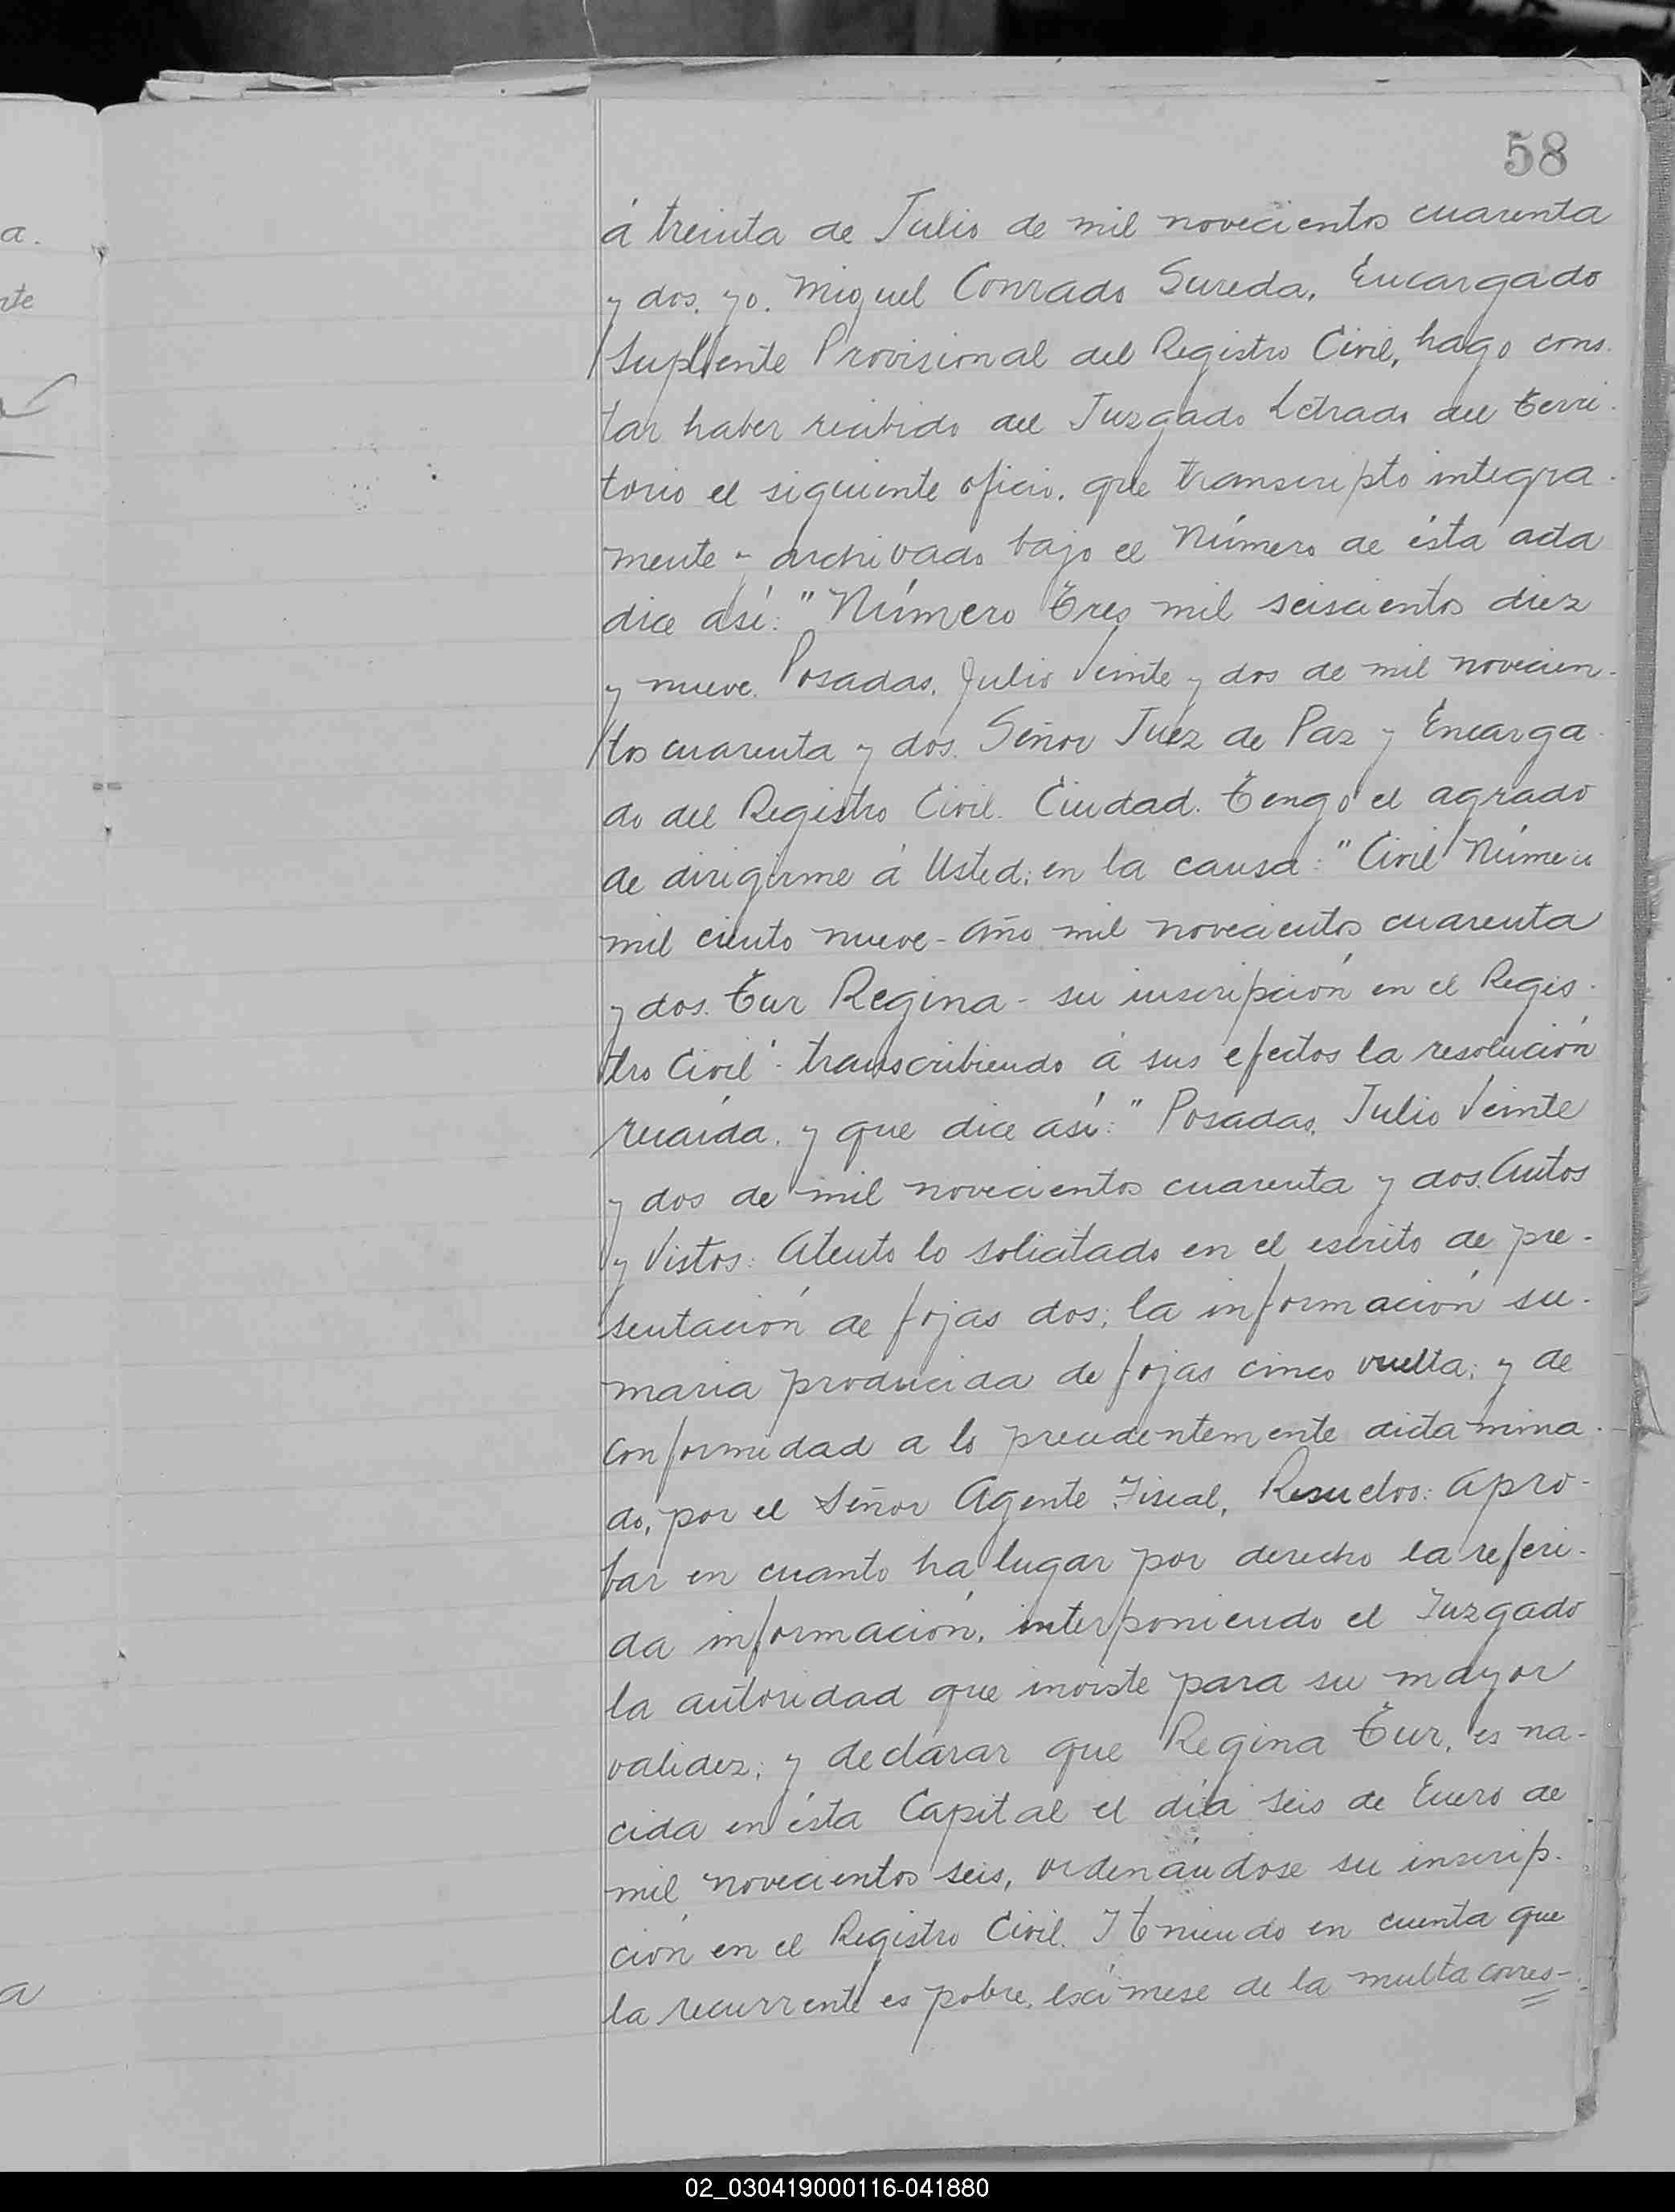 58
a.
á treinta de Julio de mil novecientos cuarenta
nte
y dos. yo. Miguel Conrado Sureda, Encargado
Suplente Provisional del Registro Civil, hago cons.
tar haber recibido del Juzgado Letrado del terri.
torio el siguiente oficio, que transcripto integra.
mente y archivado bajo el Número de ésta acta
dice así: "Número Tres mil seiscientos diez
y nueve. Posadas, Julio Veinte y dos de mil novecien-
tos cuarenta y dos. Señor Juez de Paz y Encarga.
do del Registro Civil. Ciudad. Tengo el agrado
de dirigirme á Usted; en la causa: "Civil Número
mil ciento nueve - Año mil novecientos cuarenta
y dos. Tur Regina - su inscripción en el Regis.
tro Civil": transcribiendo á sus efectos la resolución
recaída, y que dice así: "Posadas, Julio Veinte
y dos de mil novecientos cuarenta y dos. Autos
y Vistos: Atento lo solicitado en el escrito de pre-
sentación de fojas dos; la información su-
maria producida de fojas cinco vuelta; y de
conformidad a lo precedentemente dictamina.
do, por el Señor Agente Fiscal, Resuelvo: Apro-
bar en cuanto ha lugar por derecho la referi-
da información, interponiendo el Juzgado
la autoridad que inviste para su mayor
validez; y declarar que Regina Tur, es na-
cida en ésta Capital el día seis de Enero de
mil novecientos seis, ordenándose su inscrip-
ción en el Registro Civil. Y teniendo en cuenta que
a
la recurrente es pobre, exímese de la multa corres-
02_030419000116-041880